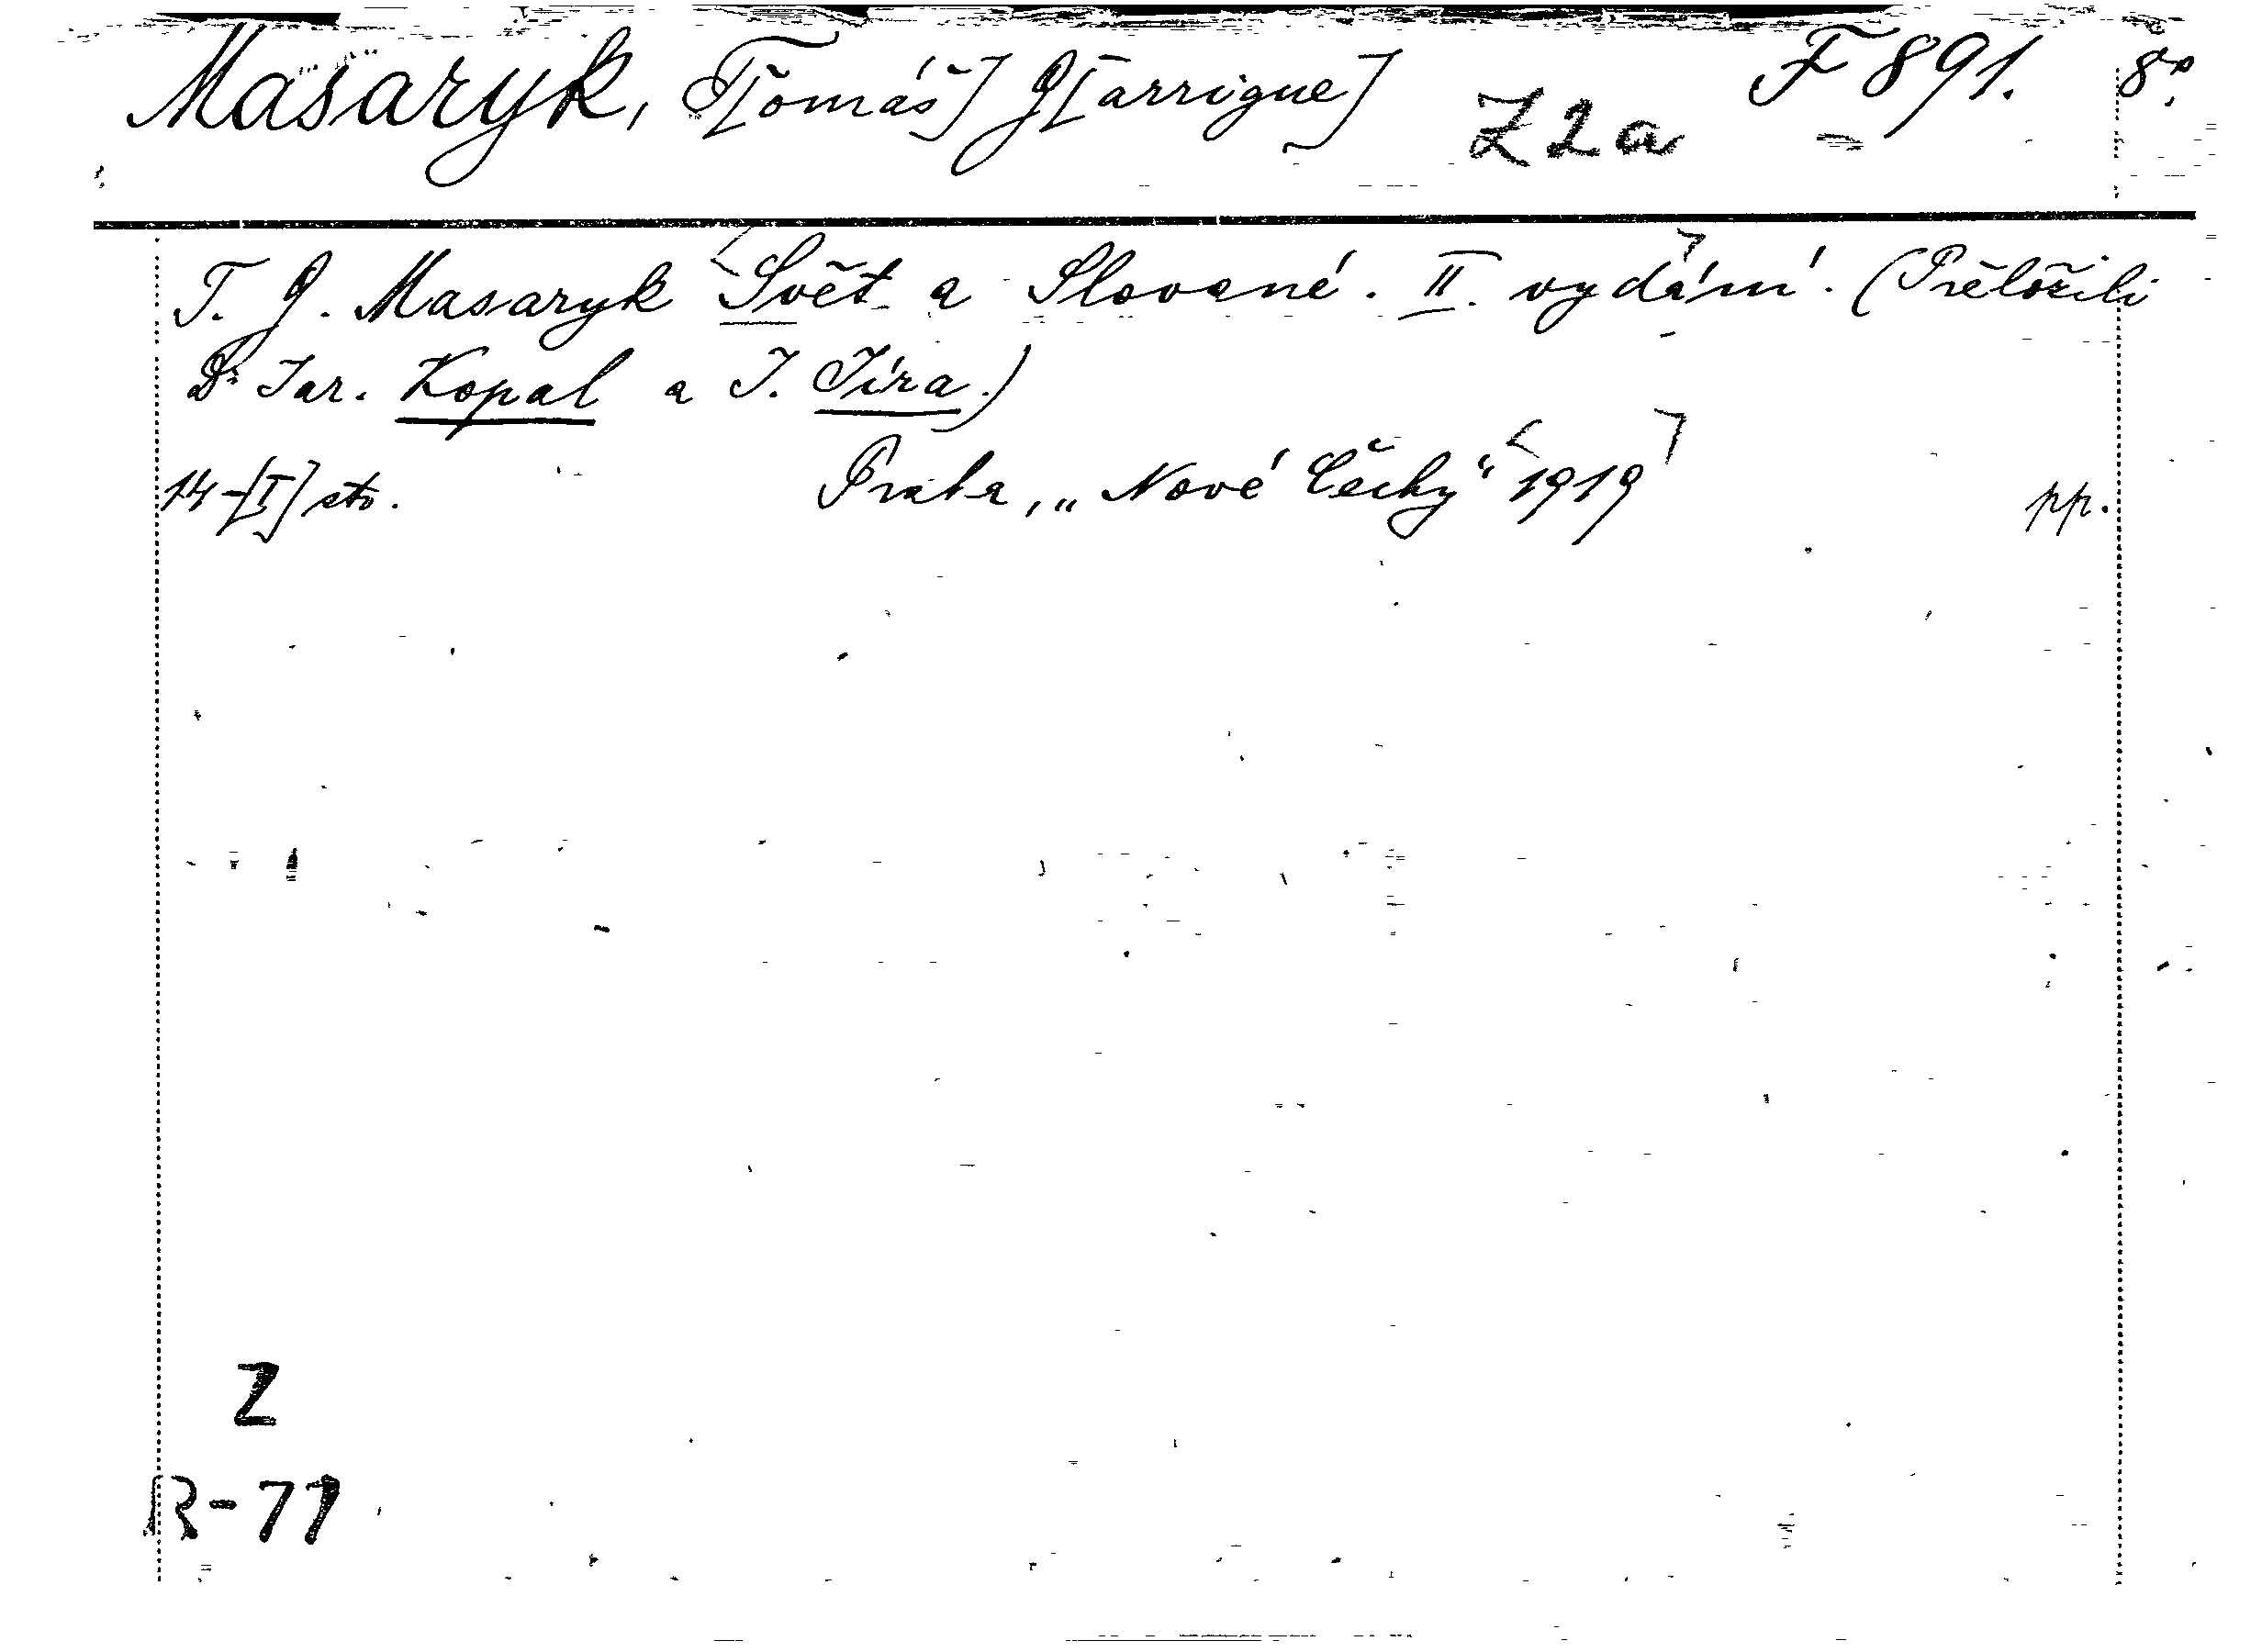 Masaryk, T[omáš] G[arrigue] Z2a F 891. 8°.
T. G. Masaryk Svět a Slované. II. vydání. (Přeložili
Dr Jar. Kopal a J. Jíra.)
14-[I] str. Praha, „Nové Čechy“ 1919 pp.
Z
R-77